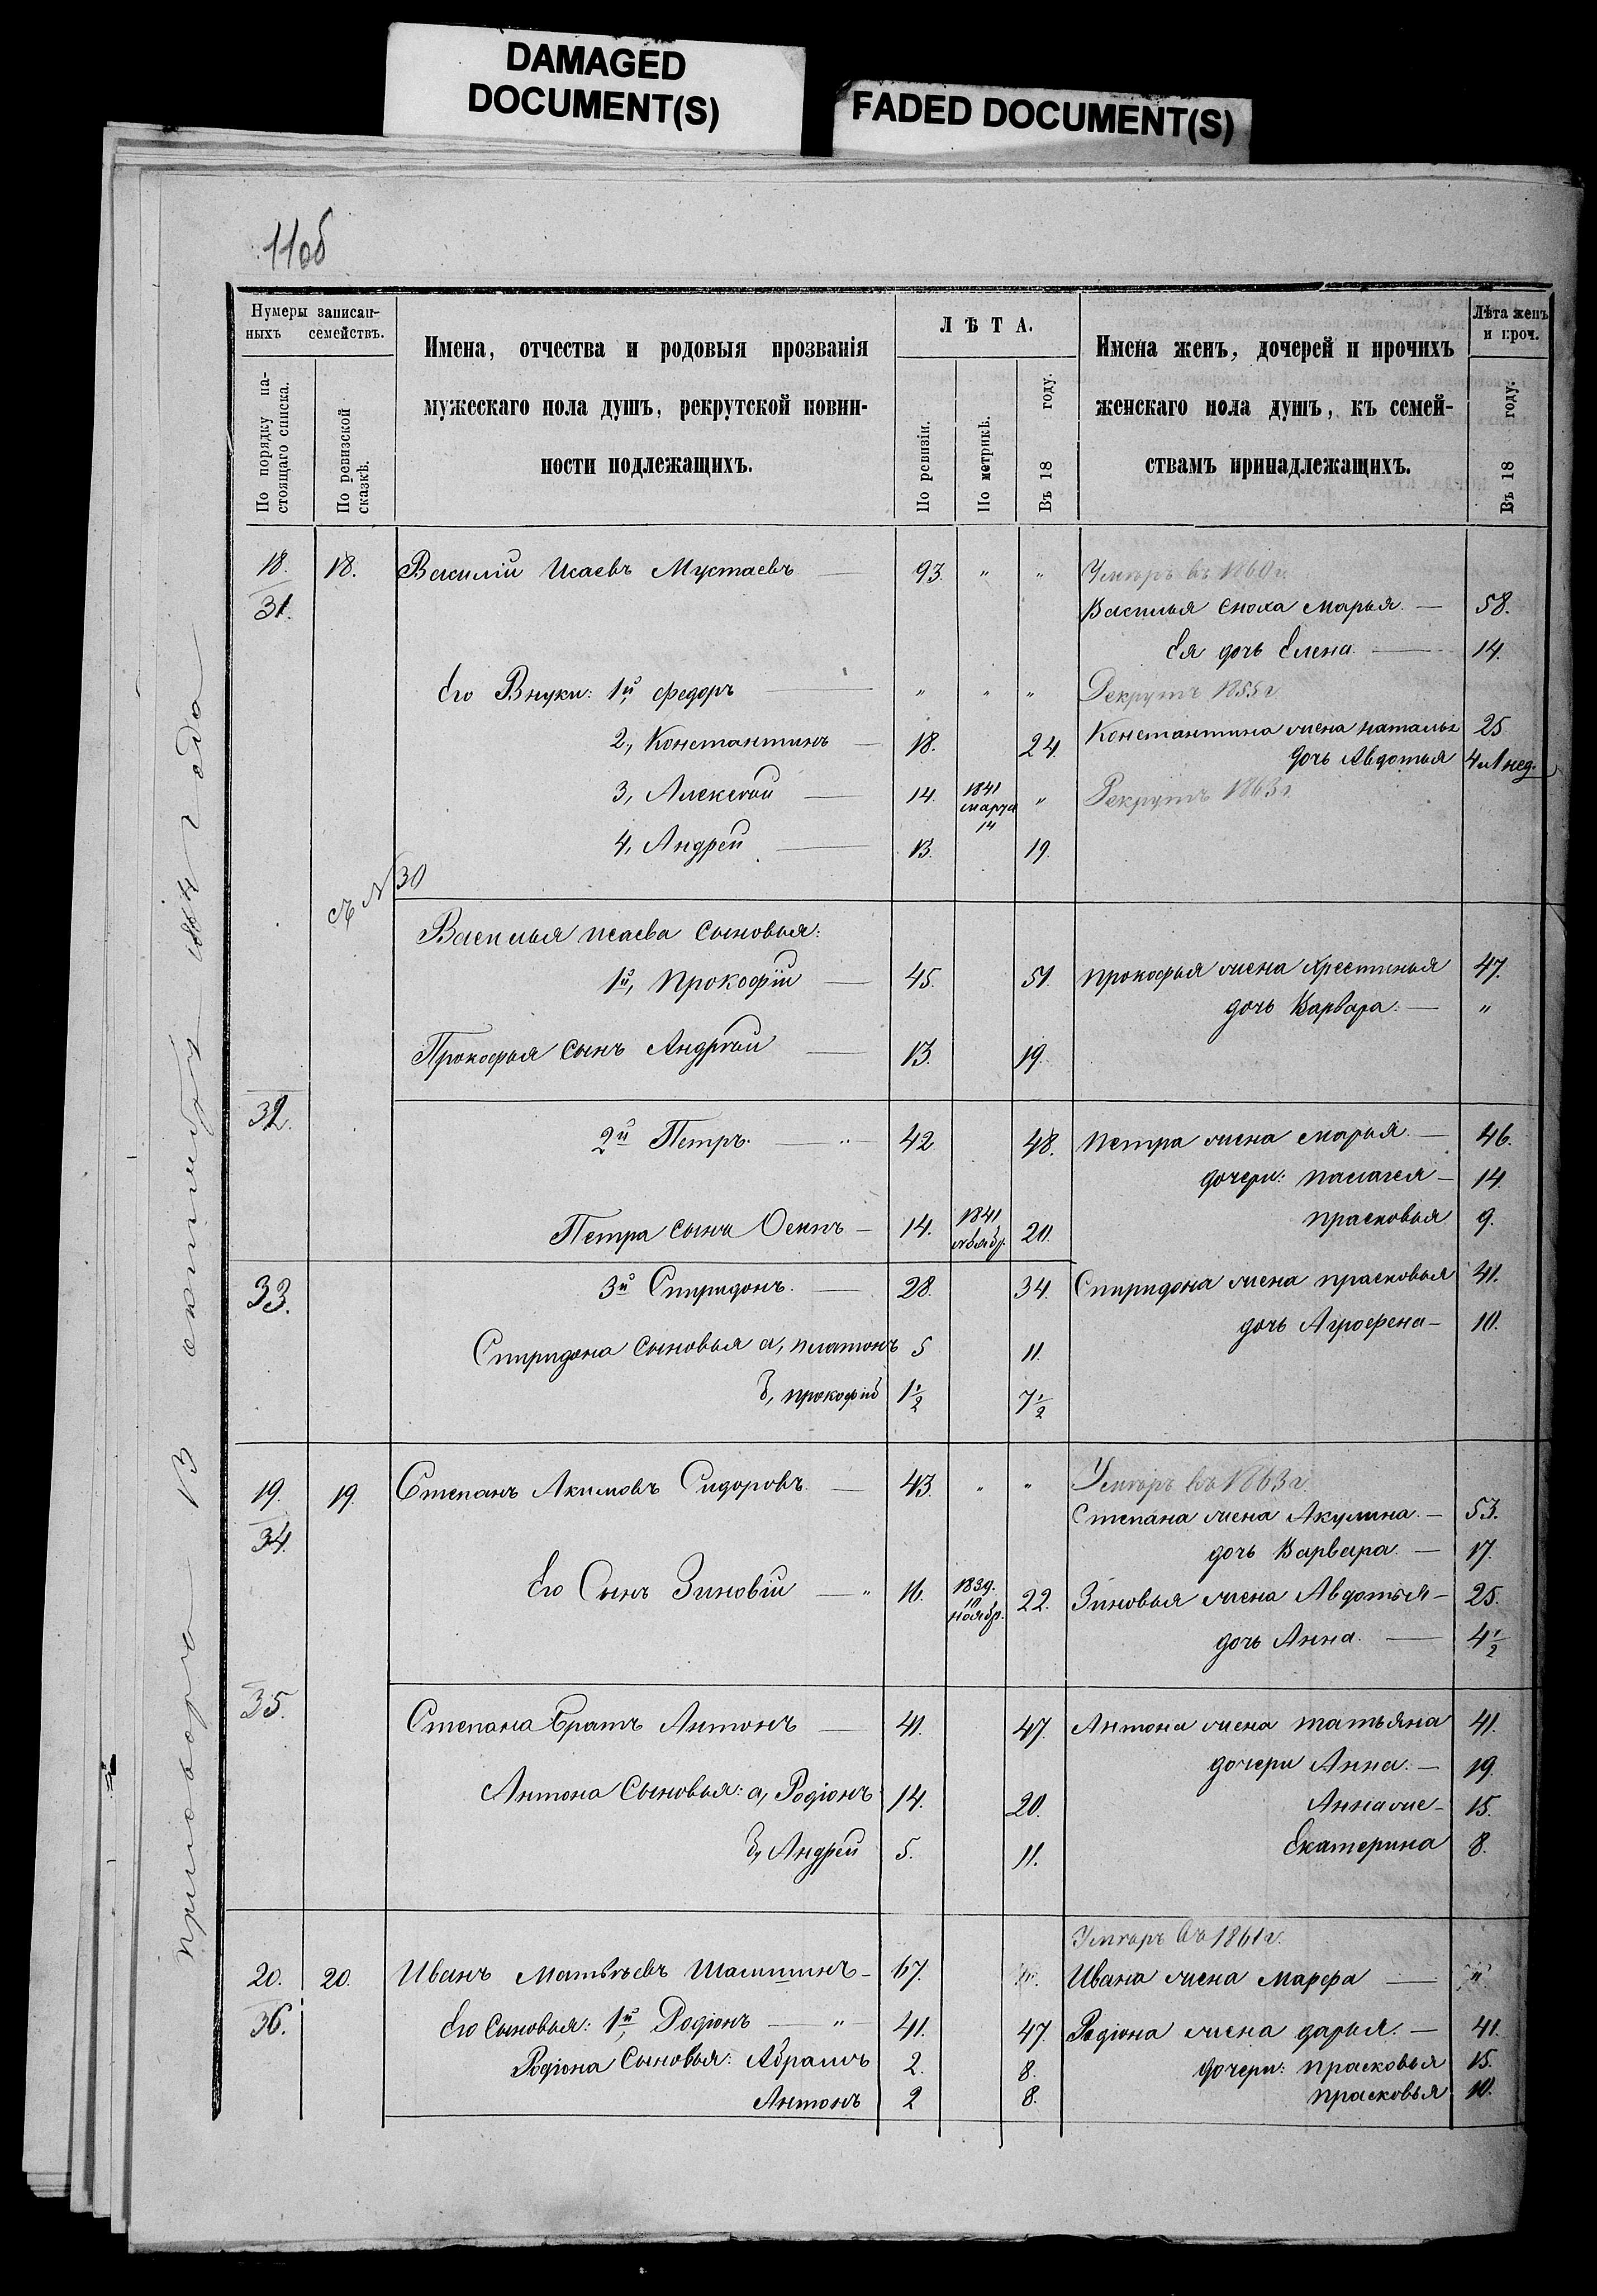 DAMAGED
DOCUMENT(S)
FADED DOCUMENT(S)
11об
Нумеры записан-
ныхъ семействъ.
По порядку на-
стоящаго списка.
По ревизской
сказкѣ.
Имена, отчества и родовыя прозванія
мужескаго пола душъ, рекрутской повин-
ности подлежащихъ.
ЛѢТА.
По ревизіи.
По метрикѣ.
Въ 18 году.
Имена женъ, дочерей и прочихъ
женскаго пола душъ, къ семей-
ствамъ принадлежащихъ.
Лѣта женъ
и проч.
Въ 18 году.
18. 18. Василій Исаевъ Мустаевъ — 93. " " Умеръ въ 1860 г.
31. Василья сноха Марья — 58.
Ея дочь Елена — 14.
Его Внуки: 1й Федоръ — " " " Рекрутъ 1855 г.
2, Константинъ — 18. 24. Константина жена Наталья 25
дочь Авдотья 4 и 1 нед.
3, Алексѣй — 14. 1841 марта 14 " Рекрутъ 1863 г.
4, Андрей — 13. 19.
съ № 30
Василья Исаева сыновья:
1й, Прокофій — 45. 51. Прокофья жена Хрестинья 47.
дочь Варвара — "
Прокофья сынъ Андрѣй — 13. 19.
32. 2й Петръ — " 42. 48. Петра жена Марья — 46.
дочери: Палагея — 14.
Прасковья 9.
Петра сынъ Осипъ — 14. 1841 20.
33. 3й Спиридонъ — 28. 34. Спиридона жена Прасковья 41.
дочь Агрофена — 10.
Спиридона сыновья а, Платонъ 5 11.
б, Прокофій 1½ 7½
19. 19. Степанъ Акимовъ Сидоровъ — 43. " " Умеръ въ 1863 г.
34. Степана жена Акулина — 53.
дочь Варвара — 17.
Его Сынъ Зиновій — " 16. 1839. 10 ноябр. 22. Зиновья жена Авдотья — 25.
дочь Анна — 4½
35. Степана братъ Антонъ — 41. 47. Антона жена Татьяна 41.
дочери Анна — 19.
Антона Сыновья: а, Родіонъ 14. 20. Анна же — 15.
б, Андрей 5. 11. Екатерина 8.
Умеръ въ 1861 г.
20. 20. Иванъ Матвѣевъ — 67. " Ивана жена Марфа — "
36. Его сыновья: 1й, Родіонъ — " 41. 47. Родіона жена Дарья — 41.
Родіона Сыновья: Абрамъ 2. 8. дочери: Прасковья 15.
Антонъ 2 8. Прасковья 10.
приговора 13 октября года